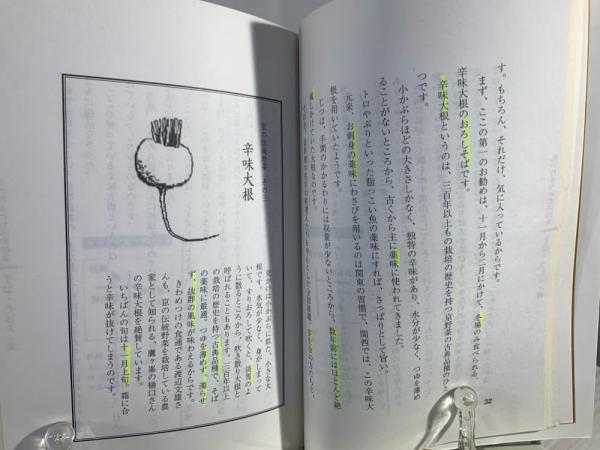 す。もちろん、それだけ、気に入っているからです。
まず、ここの第一のお勧めは、十一月から二月にかけて、冬場のみ食べられる、
辛味大根のおろしそばです。
辛味大根というのは、三百年以上もの栽培の歴史を持つ京野菜の古典品種のひと
つです。
小かぶらほどの大きさしかなく、独特の辛味があり、水分が少なく、つゆを薄め
ることがないところから、古くから主に薬味に使われてきました。
トロやぶりといった脂っこい魚の薬味にすれば、さっぱりとして旨い。
元来、お刺身の薬味にわさびを用いるのは関東の習慣で、関西では、この辛味大
根を用いていたようです。
じつは、手間のかかるわりには収量が少ないところから、数年前にはほとんど絶
滅しかけていた大根なのです。
32
辛味大根
見かけは小かぶらに似た、小さな大
根です。水気が少なく、身がしまって
いて、すりおろして吹くと、淡雪のよ
うに散るところから、吹き散り大根と
呼ばれることもあります。三百年以上
の栽培の歴史を持つ古典品種で、そば
の薬味に最適。つゆを薄めず、濁らせ
ず、抜群の風味が味わえるからです。
きわめつけの食通である渡辺文雄さ
んも、京の伝統野菜を栽培している農
家として知られる、鷹ヶ峯の樋口さん
の辛味大根を絶賛しています。
いちばんの旬は十一月上旬。霜に合
うと辛味が抜けてしまうのです。